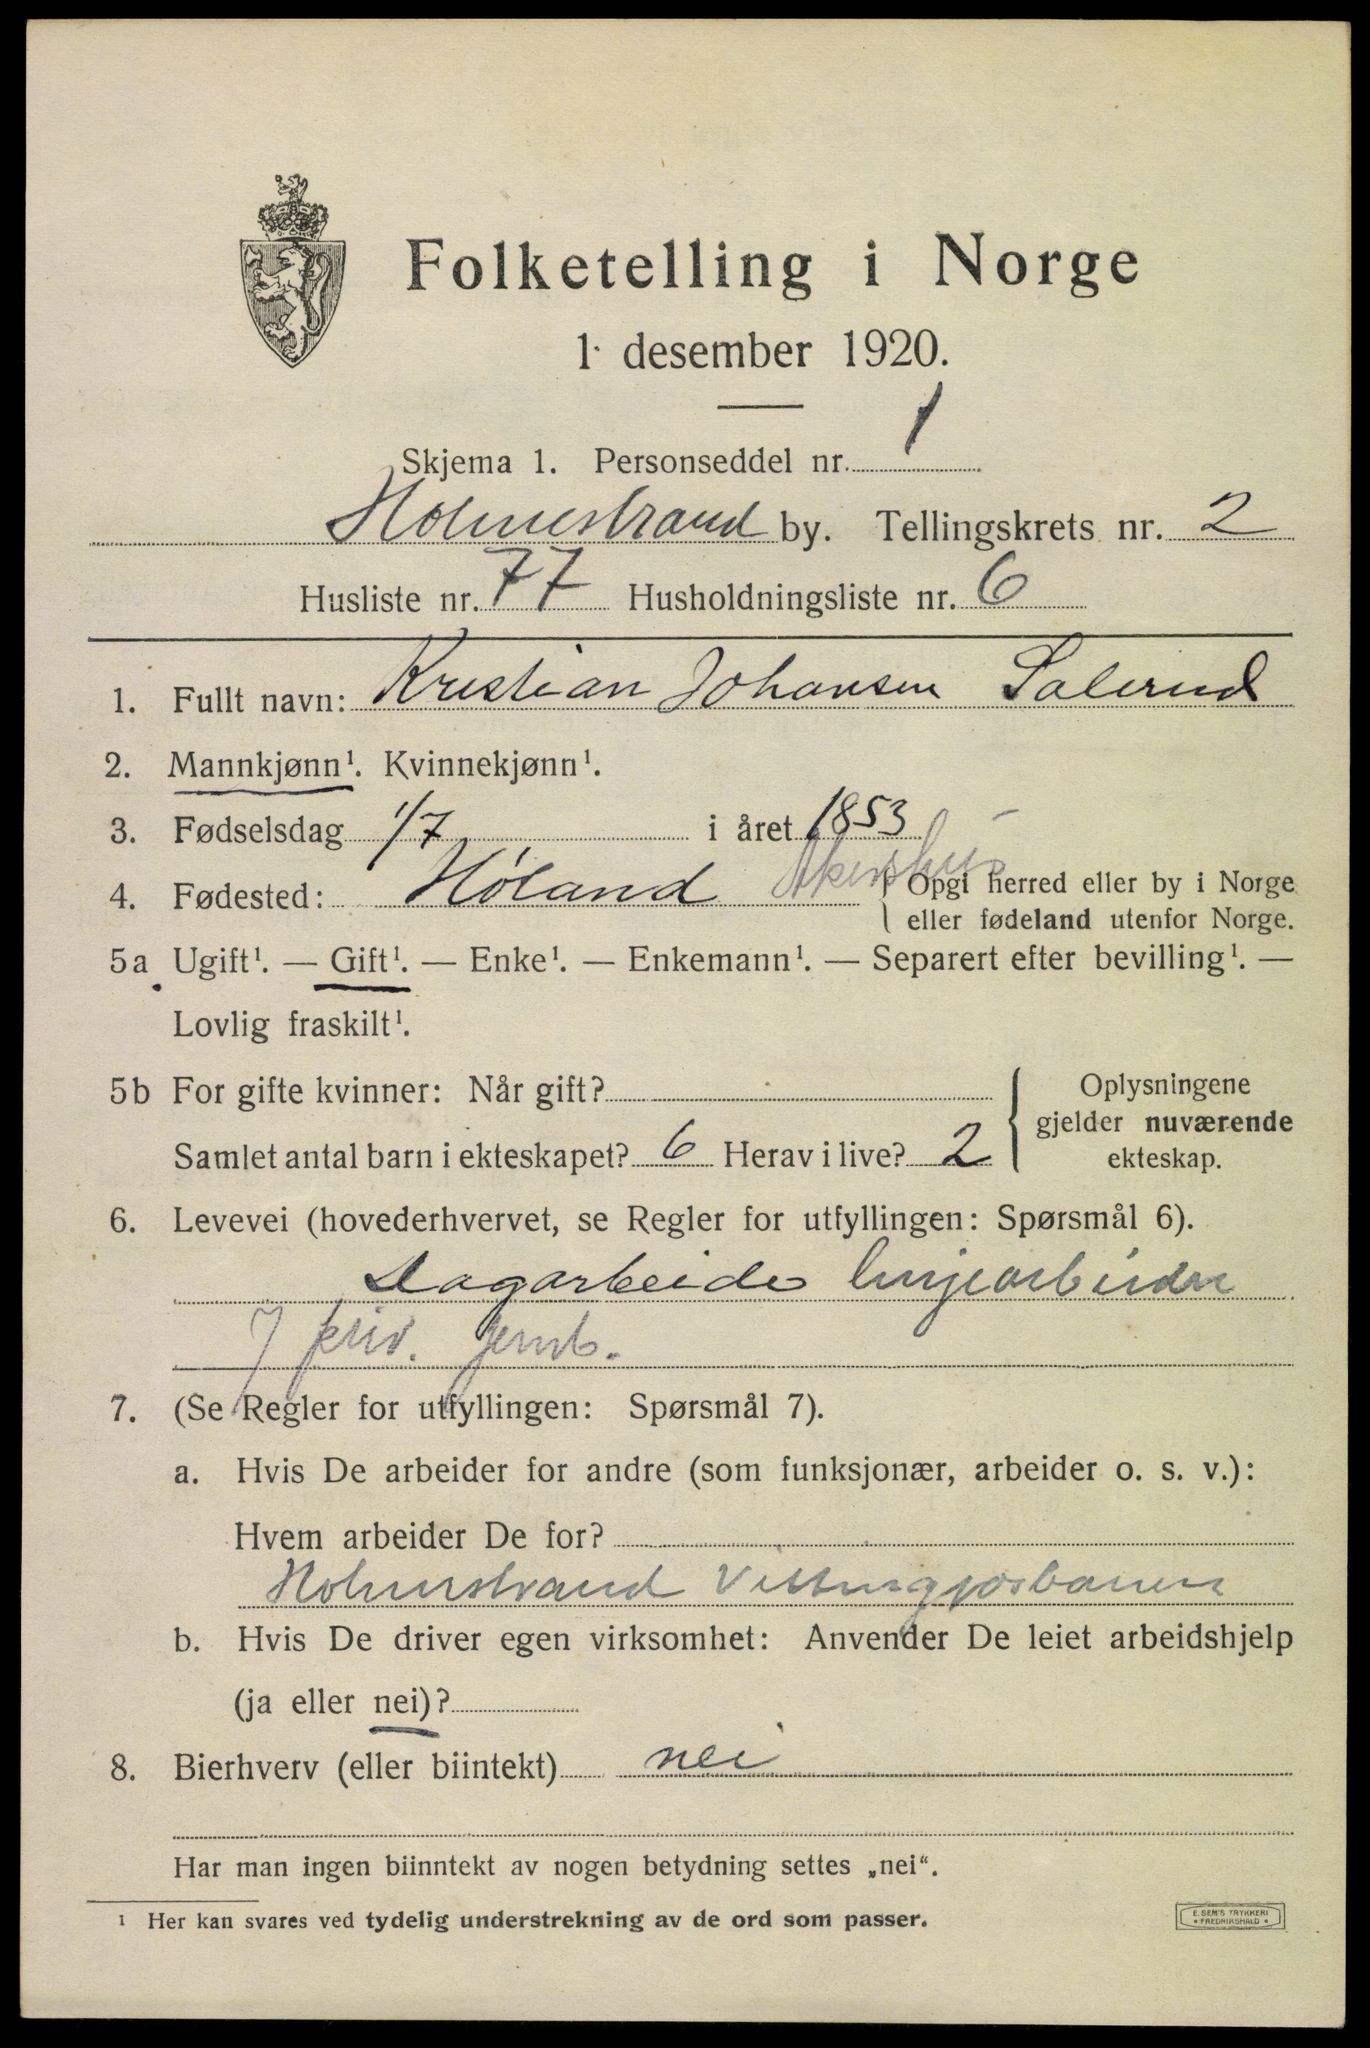 Folketelling i Norge
1. desember 1920.
Skjema 1. Personseddel nr. 1
Holmestrand by. Tellingskrets nr. 2
Husliste nr. 77 Husholdningsliste nr. 6
1. Fullt navn: Kristian Johansen Solerud
2. Mannkjønn¹. Kvinnekjønn¹.
3. Fødselsdag 1/7 i året 1853
4. Fødested: Høland Akershus { Opgi herred eller by i Norge
eller fødeland utenfor Norge.
5a Ugift¹. — Gift¹. — Enke¹. — Enkemann¹. — Separert efter bevilling¹. —
Lovlig fraskilt¹.
5b For gifte kvinner: Når gift?
Samlet antal barn i ekteskapet? 6 Herav i live? 2
{ Oplysningene
gjelder nuværende
ekteskap.
6. Levevei (hovederhvervet, se Regler for utfyllingen: Spørsmål 6).
Dagarbeide linjearbeider
J priv. jernb.
7. (Se Regler for utfyllingen: Spørsmål 7).
a. Hvis De arbeider for andre (som funksjonær, arbeider o. s. v.):
Hvem arbeider De for?
Holmestrand Vittingfosbanen
b. Hvis De driver egen virksomhet: Anvender De leiet arbeidshjelp
(ja eller nei)?
8. Bierhverv (eller biintekt) nei
Har man ingen biinntekt av nogen betydning settes „nei“.
¹ Her kan svares ved tydelig understrekning av de ord som passer.
E. SEM'S TRYKKERI
• FREDRIKSHALD •